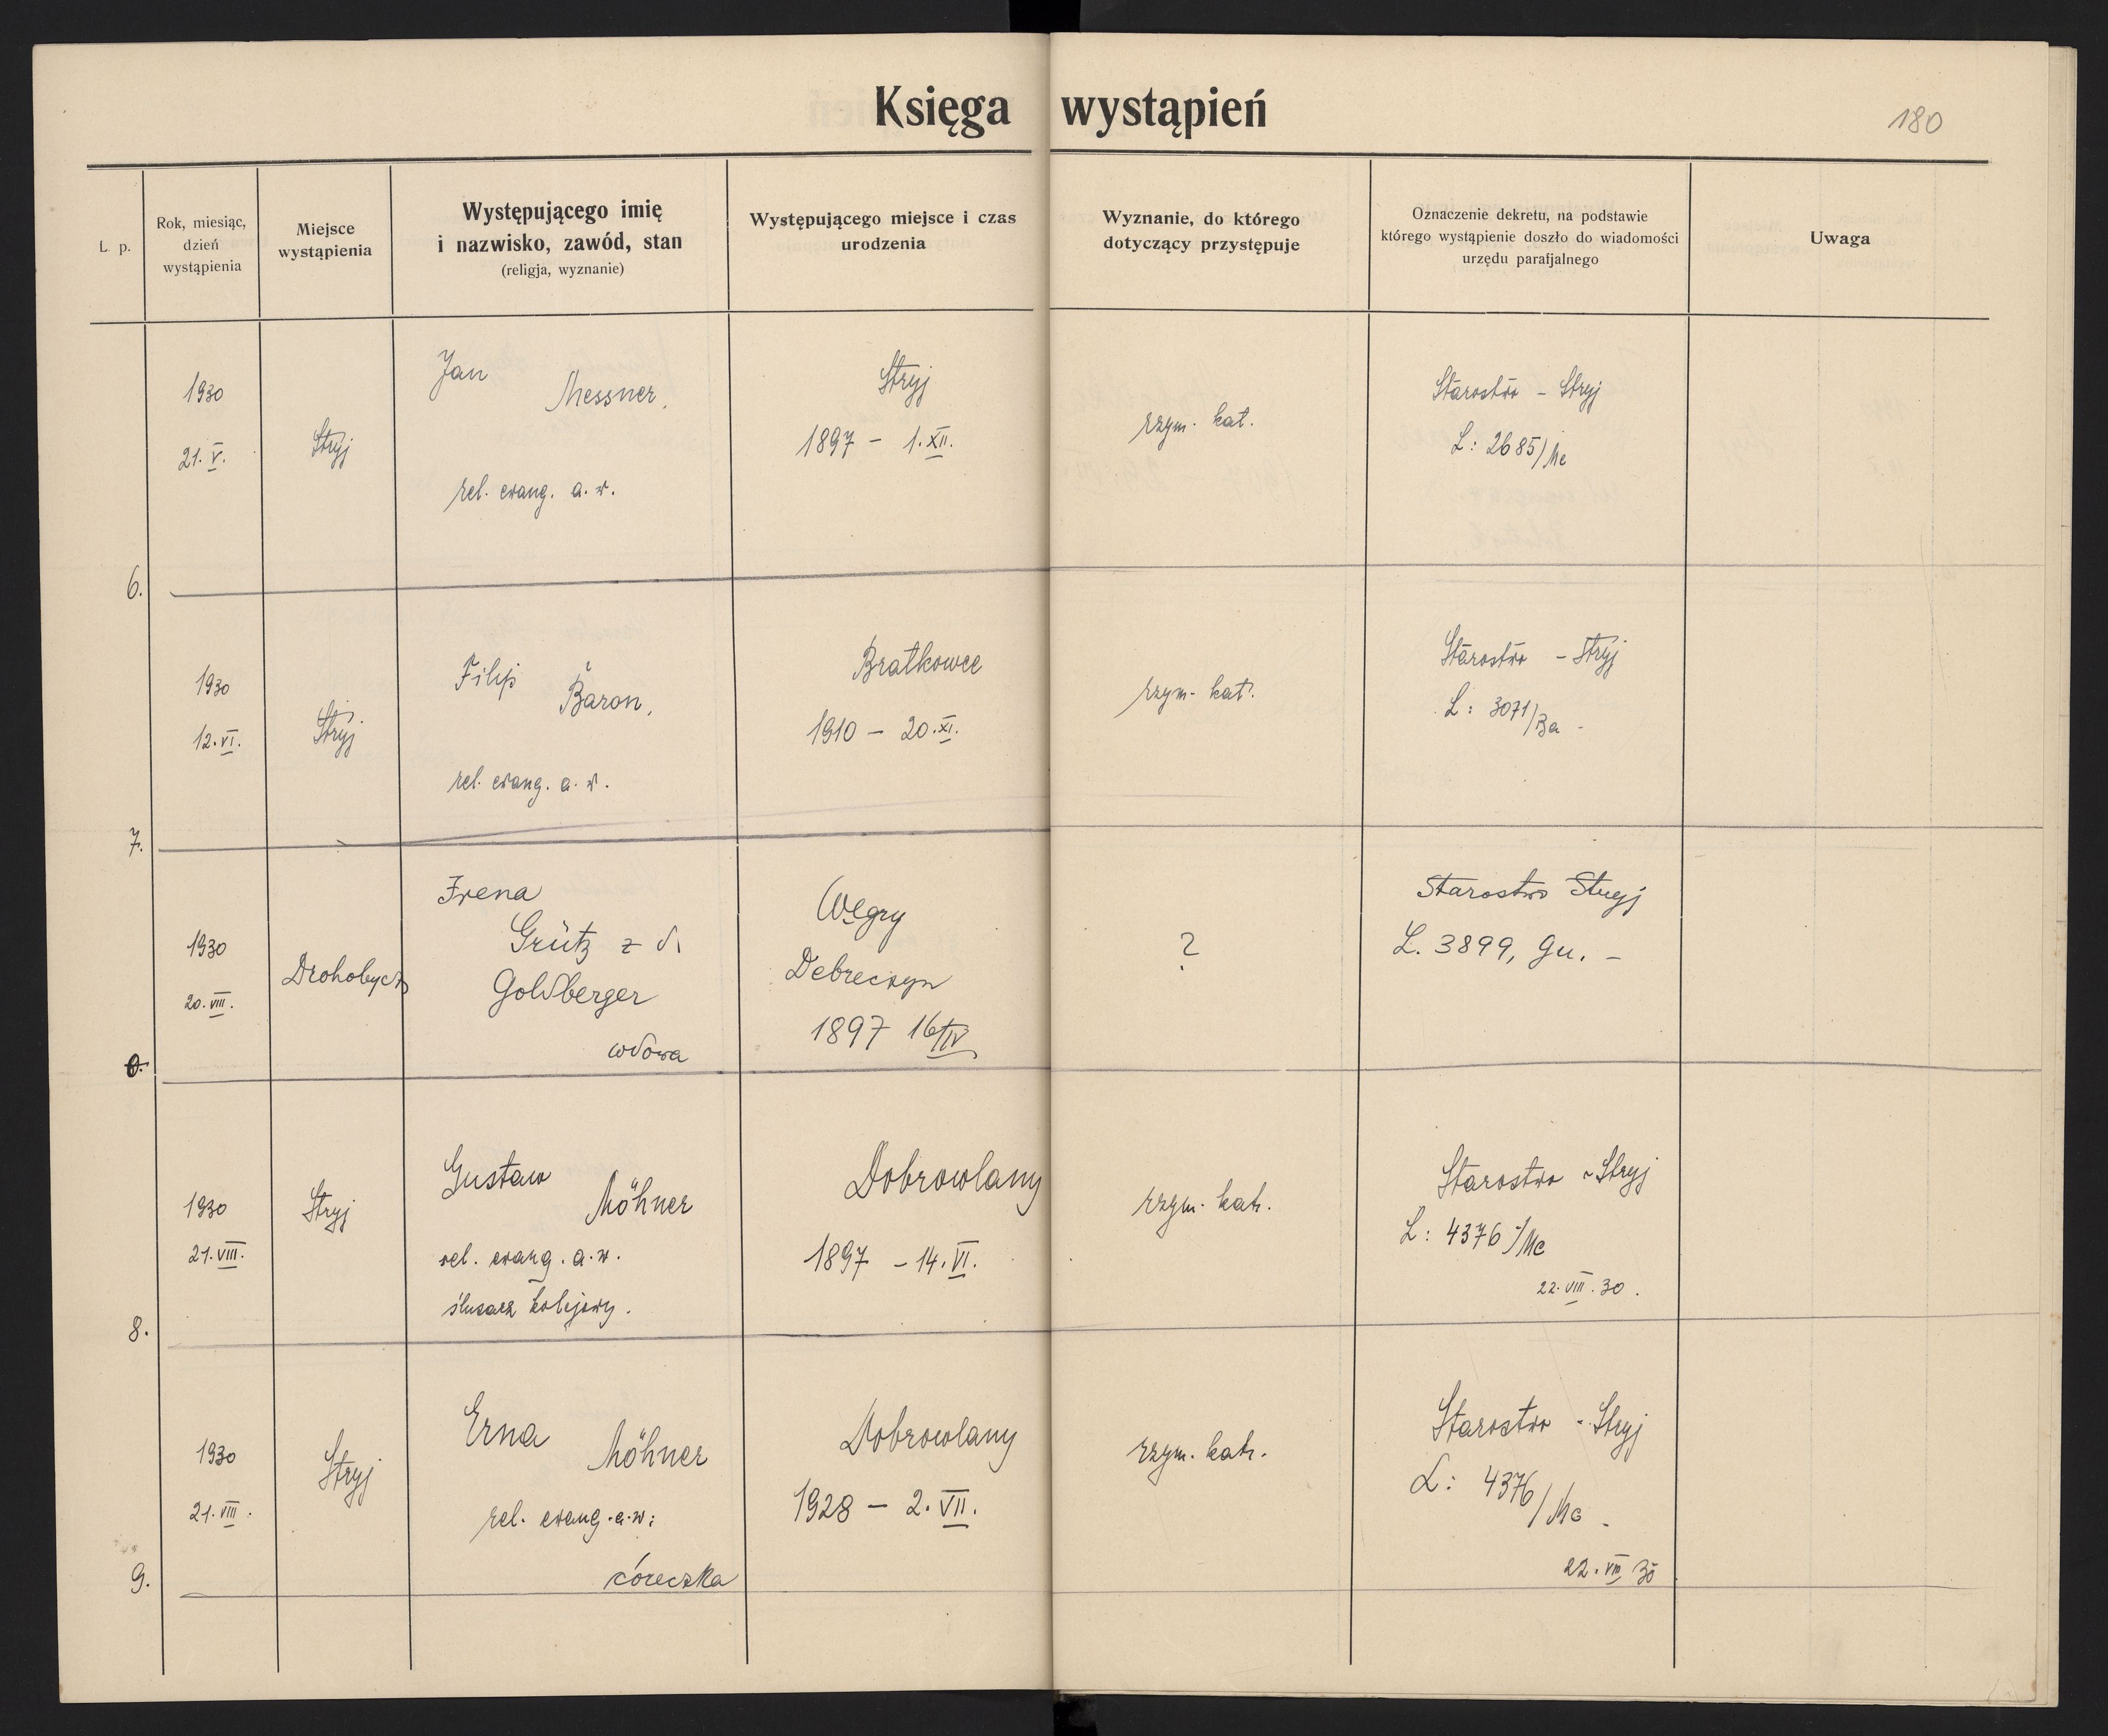 Księga wystąpień
180
L. p.
Rok, miesiąc,
dzień
wystąpienia
Miejsce
wystąpienia
Występującego imię
i nazwisko, zawód, stan
(religja, wyznanie)
Występującego miejsce i czas
urodzenia
Wyznanie, do którego
dotyczący przystępuje
Oznaczenie dekretu, na podstawie
którego wystąpienie doszło do wiadomości
urzędu parafjalnego
Uwaga
6.
1930
21. V.
Stryj
Jan
Messner,
rel. ewang. a. w.
Stryj
1897 – 1. XII.
rzym. kat.
Starostwo – Stryj
L: 2685/Me
7.
1930
12. VI.
Stryj
Filip
Baron,
rel. ewang. a. w.
Bratkowce
1910 – 20. XI.
rzym. kat.
Starostwo – Stryj
L: 3071/Ba -
1930
20. VIII.
Drohobycz
Irena
Grütz z d.
Goldberger
wdowa
Węgry
Debreczyn
1897 16/IV
?
Starostwo Stryj
L. 3899, Gu. –
8.
1930
21. VIII.
Stryj
Gustaw
Möhner
rel. ewang. a. w.
ślusarz kolejowy.
Dobrowlany
1897 – 14. VI.
rzym. kat.
Starostwo - Stryj
L: 4376/Mc
22. VIII. 30.
9.
1930
21. VIII.
Stryj
Erna
Möhner
rel. ewang. a. w.
córeczka
Dobrowlany
1928 – 2. VII.
rzym. kat.
Starostwo - Stryj
L: 4376/Mc -
22. VIII 30